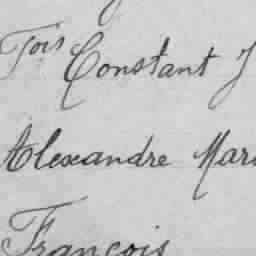 Fois Constant J
Alexandre Mari
François